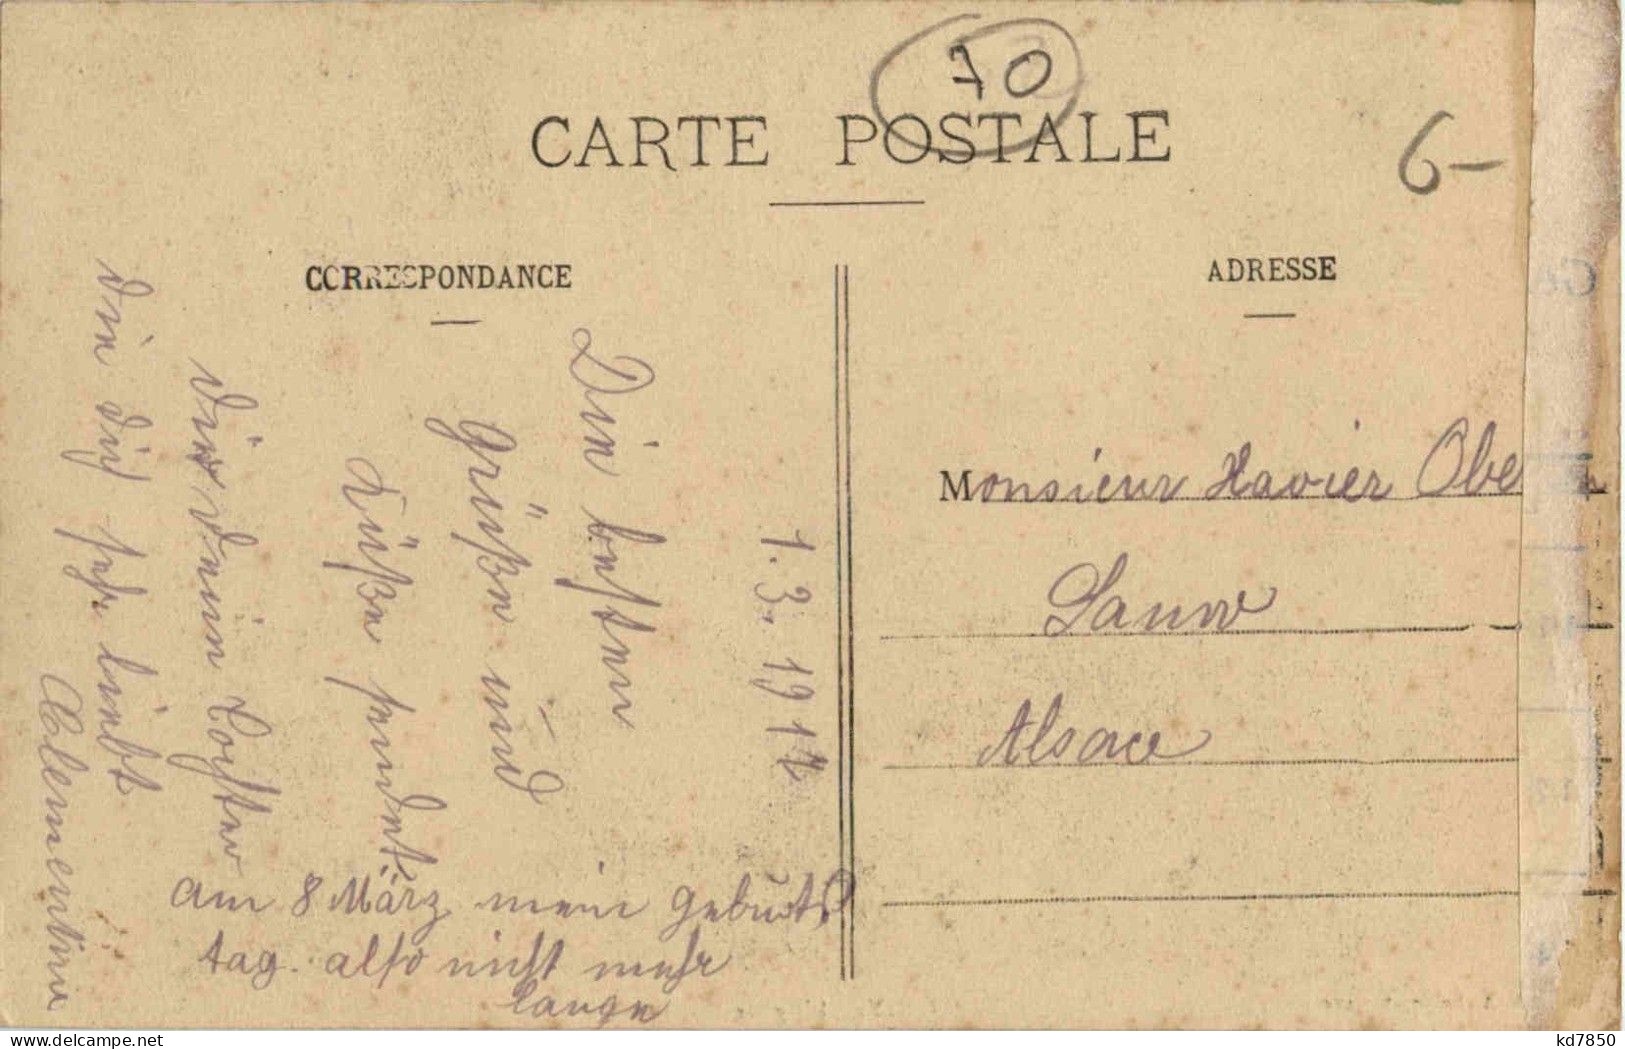 70
CARTE POSTALE
6-
CORRESPONDANCE
ADRESSE
1. 3. 1917
Die besten
Grüßen und
Küßen sendet
dir dein Tochter
die dich sehr liebt
Clementine
am 8 März mein Geburts
tag. also nicht mehr
lange
Monsieur Xavier Obe
Alsace
kd7850